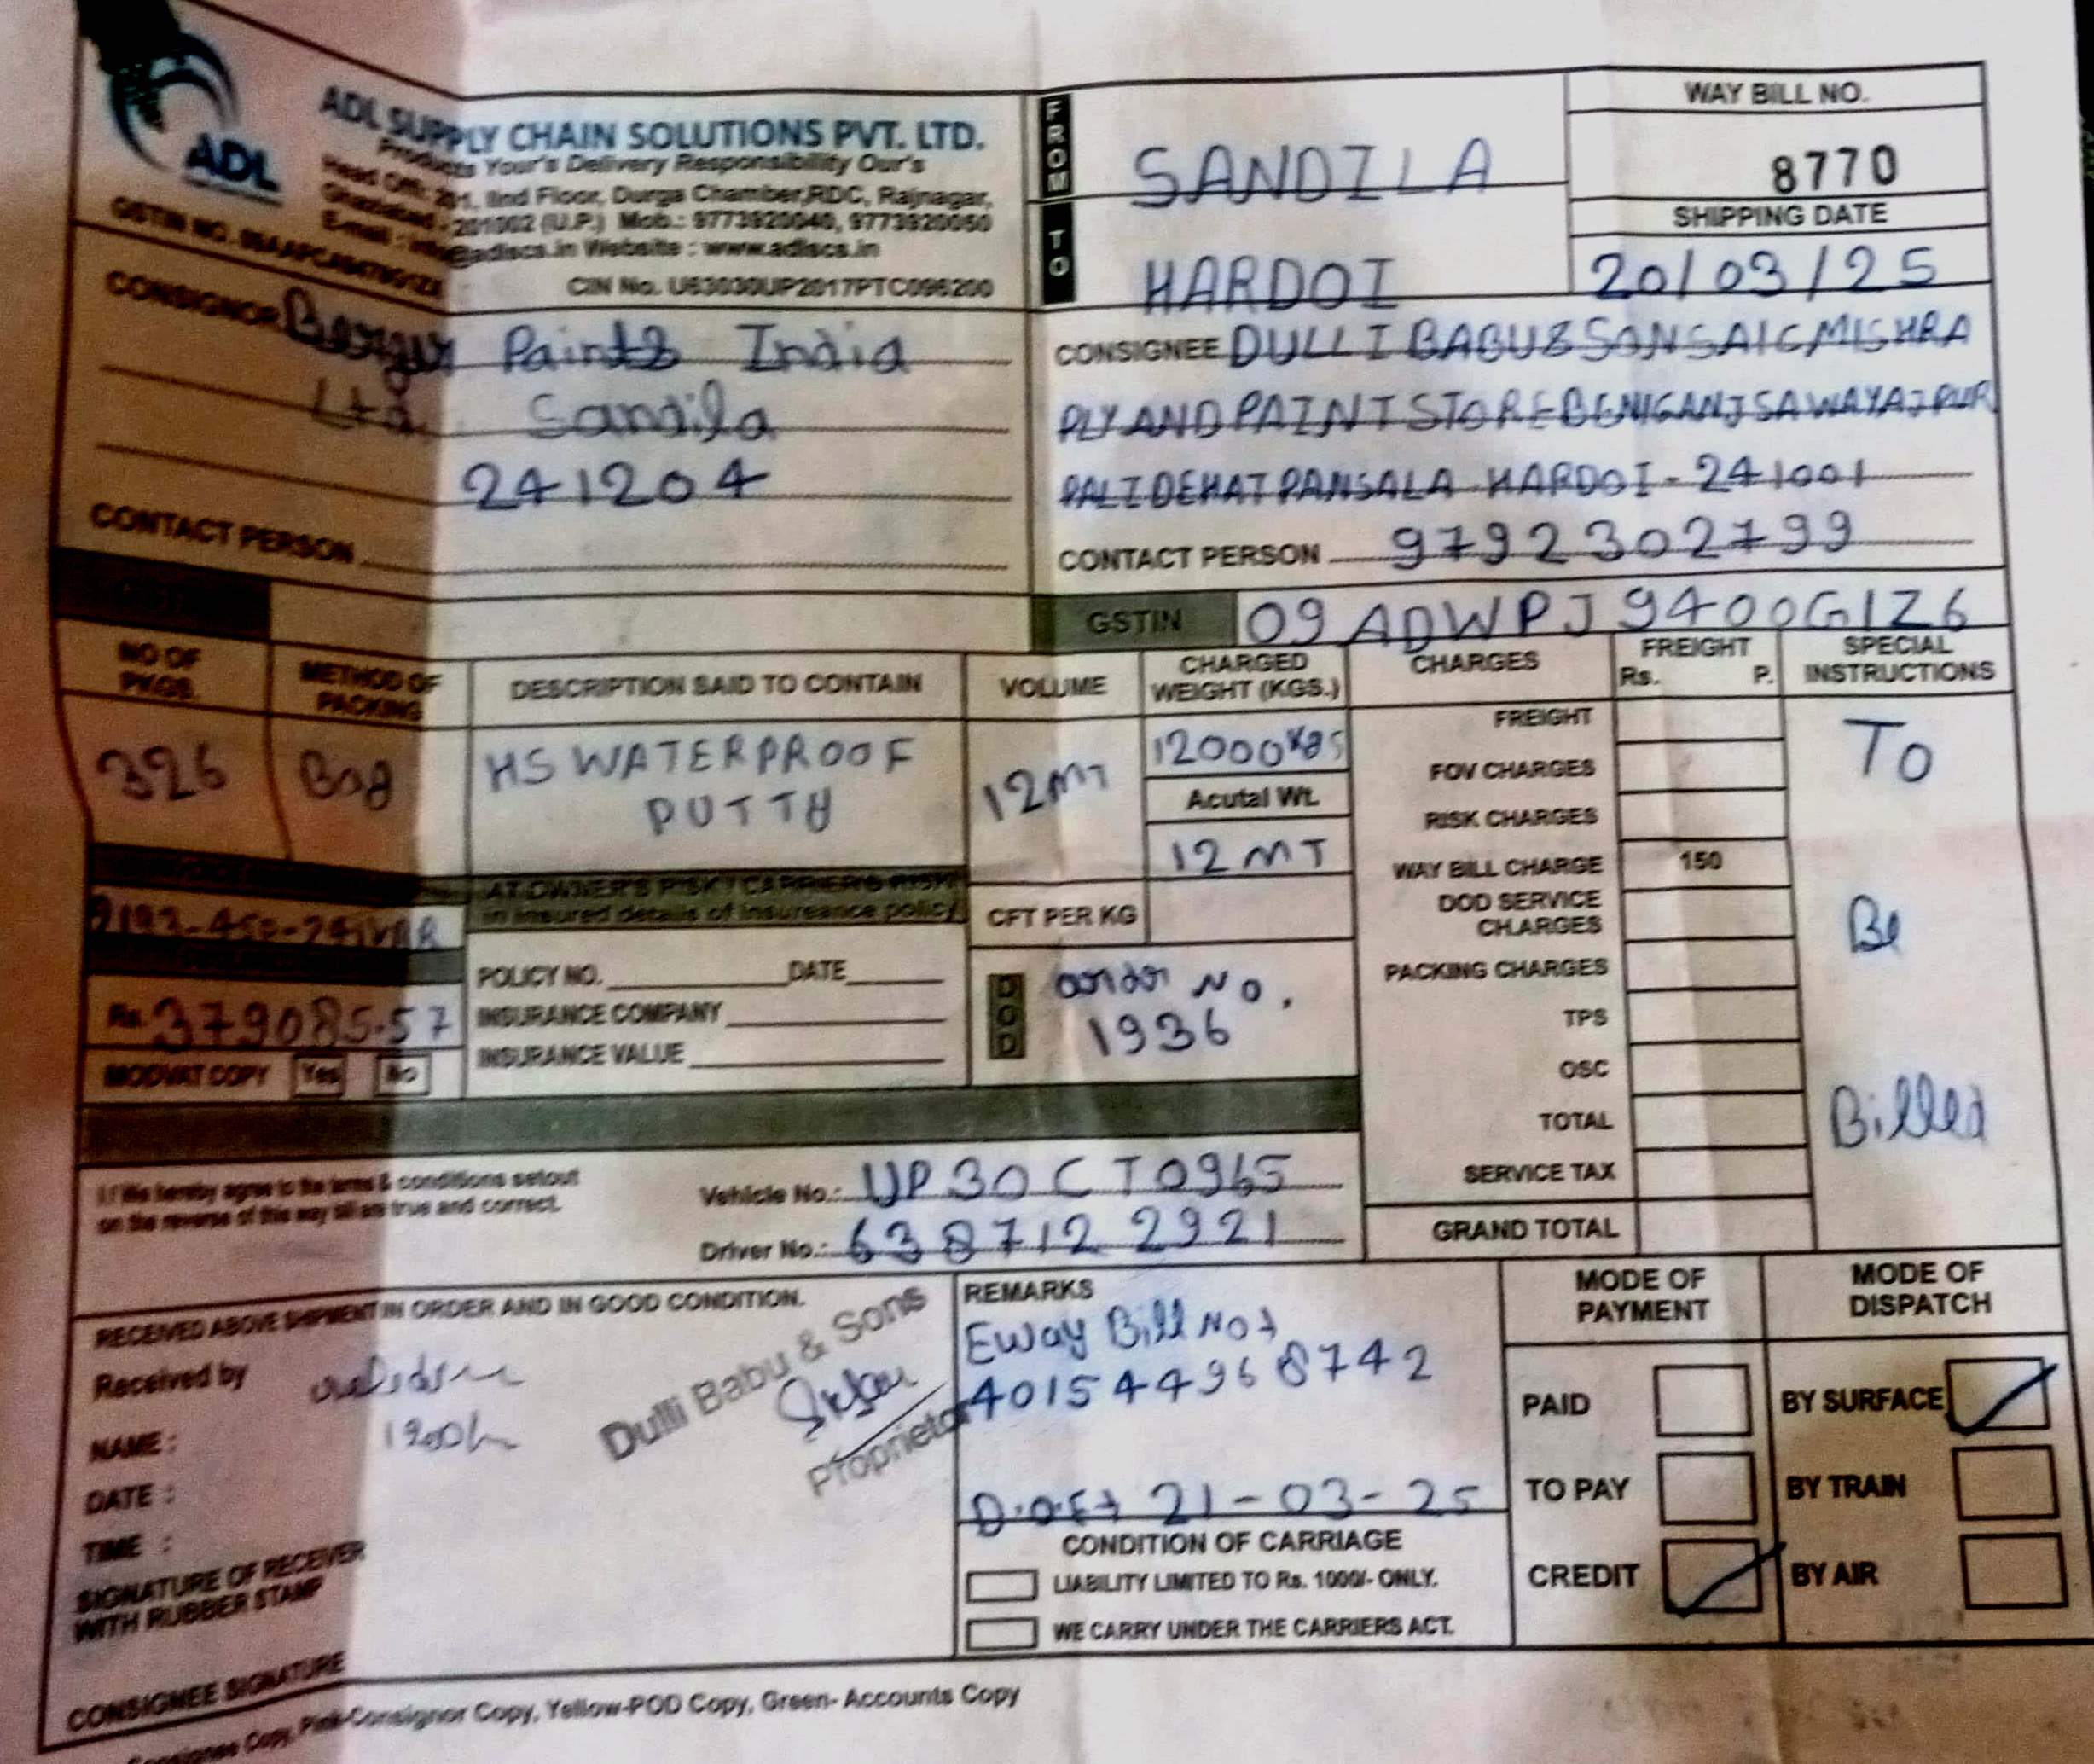 ADL
ADL SUPPLY CHAIN SOLUTIONS PVT. LTD.
Products Your's Delivery Responsibility Our's
Head Off.: 201, IInd Floor, Durga Chamber,RDC, Rajnagar,
Ghaziabad - 201002 (U.P.) Mob.: 9773920040, 9773920050
E-mail : info@adlscs.in Website : www.adlscs.in
GSTIN NO.
CIN No. U63030UP2017PTC096200
FROM
SANDILA
TO
HARDOI
WAY BILL NO.
8770
SHIPPING DATE
20/03/25
CONSIGNOR Berger Paints India
Ltd. Sandila
241204
CONTACT PERSON
CONSIGNEE DULLI BABU & SONS AIC MISHRA
PLY AND PAINT STORE BENIGANJ SAWAYAJPUR
PALI DEHAT PANSALA HARDOI - 241001
CONTACT PERSON 9792302799
GSTIN 09ADWPJ9400G1Z6
NO OF PKGS.
METHOD OF PACKING
DESCRIPTION SAID TO CONTAIN
VOLUME
CHARGED WEIGHT (KGS.)
CHARGES
FREIGHT
Rs. P.
SPECIAL INSTRUCTIONS
326
Bag
HS WATERPROOF
PUTTY
12MT
12000 Kgs
Acutal Wt.
12 MT
CFT PER KG
FREIGHT
FOV CHARGES
RISK CHARGES
WAY BILL CHARGE 150
DOD SERVICE CHARGES
PACKING CHARGES
TPS
OSC
TOTAL
SERVICE TAX
GRAND TOTAL
To
Be
Billed
AT OWNER'S RISK / CARRIER'S RISK
in insured details of insureance policy
POLICY NO. DATE
INSURANCE COMPANY
INSURANCE VALUE
Rs. 379085.57
MODVAT COPY Yes No
DOD
order No.
1936
I / We hereby agree to the terms & conditions setout
on the reverse of this way bill are true and correct.
Vehicle No.: UP30CT0965
Driver No.: 6387122921
RECEIVED ABOVE SHIPMENT IN ORDER AND IN GOOD CONDITION.
Received by
NAME :
DATE :
TIME :
SIGNATURE OF RECEIVER
WITH RUBBER STAMP
CONSIGNEE SIGNATURE
Dulli Babu & Sons
Proprietor
REMARKS
Eway Bill No
401544968742
21-03-25
CONDITION OF CARRIAGE
LIABILITY LIMITED TO Rs. 1000/- ONLY.
WE CARRY UNDER THE CARRIERS ACT.
MODE OF PAYMENT
PAID
TO PAY
CREDIT
MODE OF DISPATCH
BY SURFACE
BY TRAIN
BY AIR
Consignee Copy, Pink-Consignor Copy, Yellow-POD Copy, Green- Accounts Copy